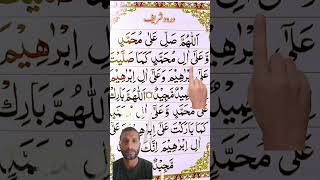 درود شریف
اَللّٰهُمَّ صَلِّ عَلٰى مُحَمَّدٍ
وَّعَلٰٓى اٰلِ مُحَمَّدٍ كَمَا صَلَّيْتَ
عَلٰٓى اِبْرٰهِيْمَ وَعَلٰٓى اٰلِ اِبْرٰهِيْمَ
مَّجِيْدٌ اَللّٰهُمَّ بَارِكْ
عَلٰى مُحَمَّدٍ وَّعَلٰٓى اٰلِ مُحَمَّدٍ
كَمَا بَارَكْتَ عَلٰٓى اِبْرٰهِيْمَ وَعَلٰٓى
اٰلِ اِبْرٰهِيْمَ اِنَّكَ
مَّجِيْدٌ